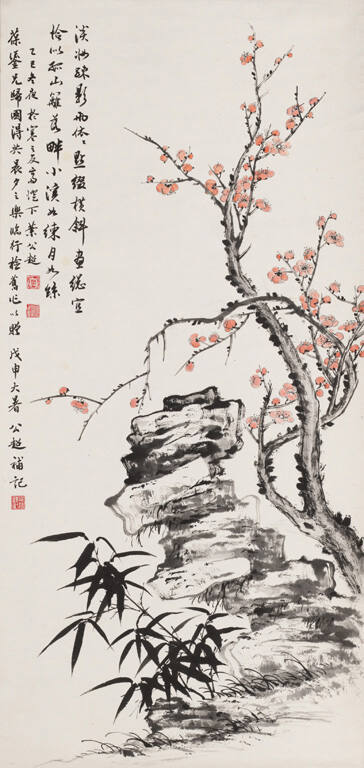 淡妝疎影兩依依點綴橫斜畫總宜
恰似孤山籬落畔小溪如練月如絲
乙巳冬夜於寒之友高澄下葉公超
葆鎏兄歸國得共晨夕之樂臨行檢舊作以贈 戊申大暑 公超補記